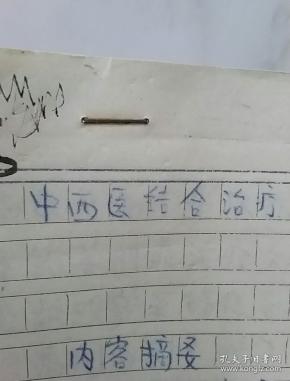 中西医结合治疗
内容摘要
孔夫子旧书网
www.kongfz.com